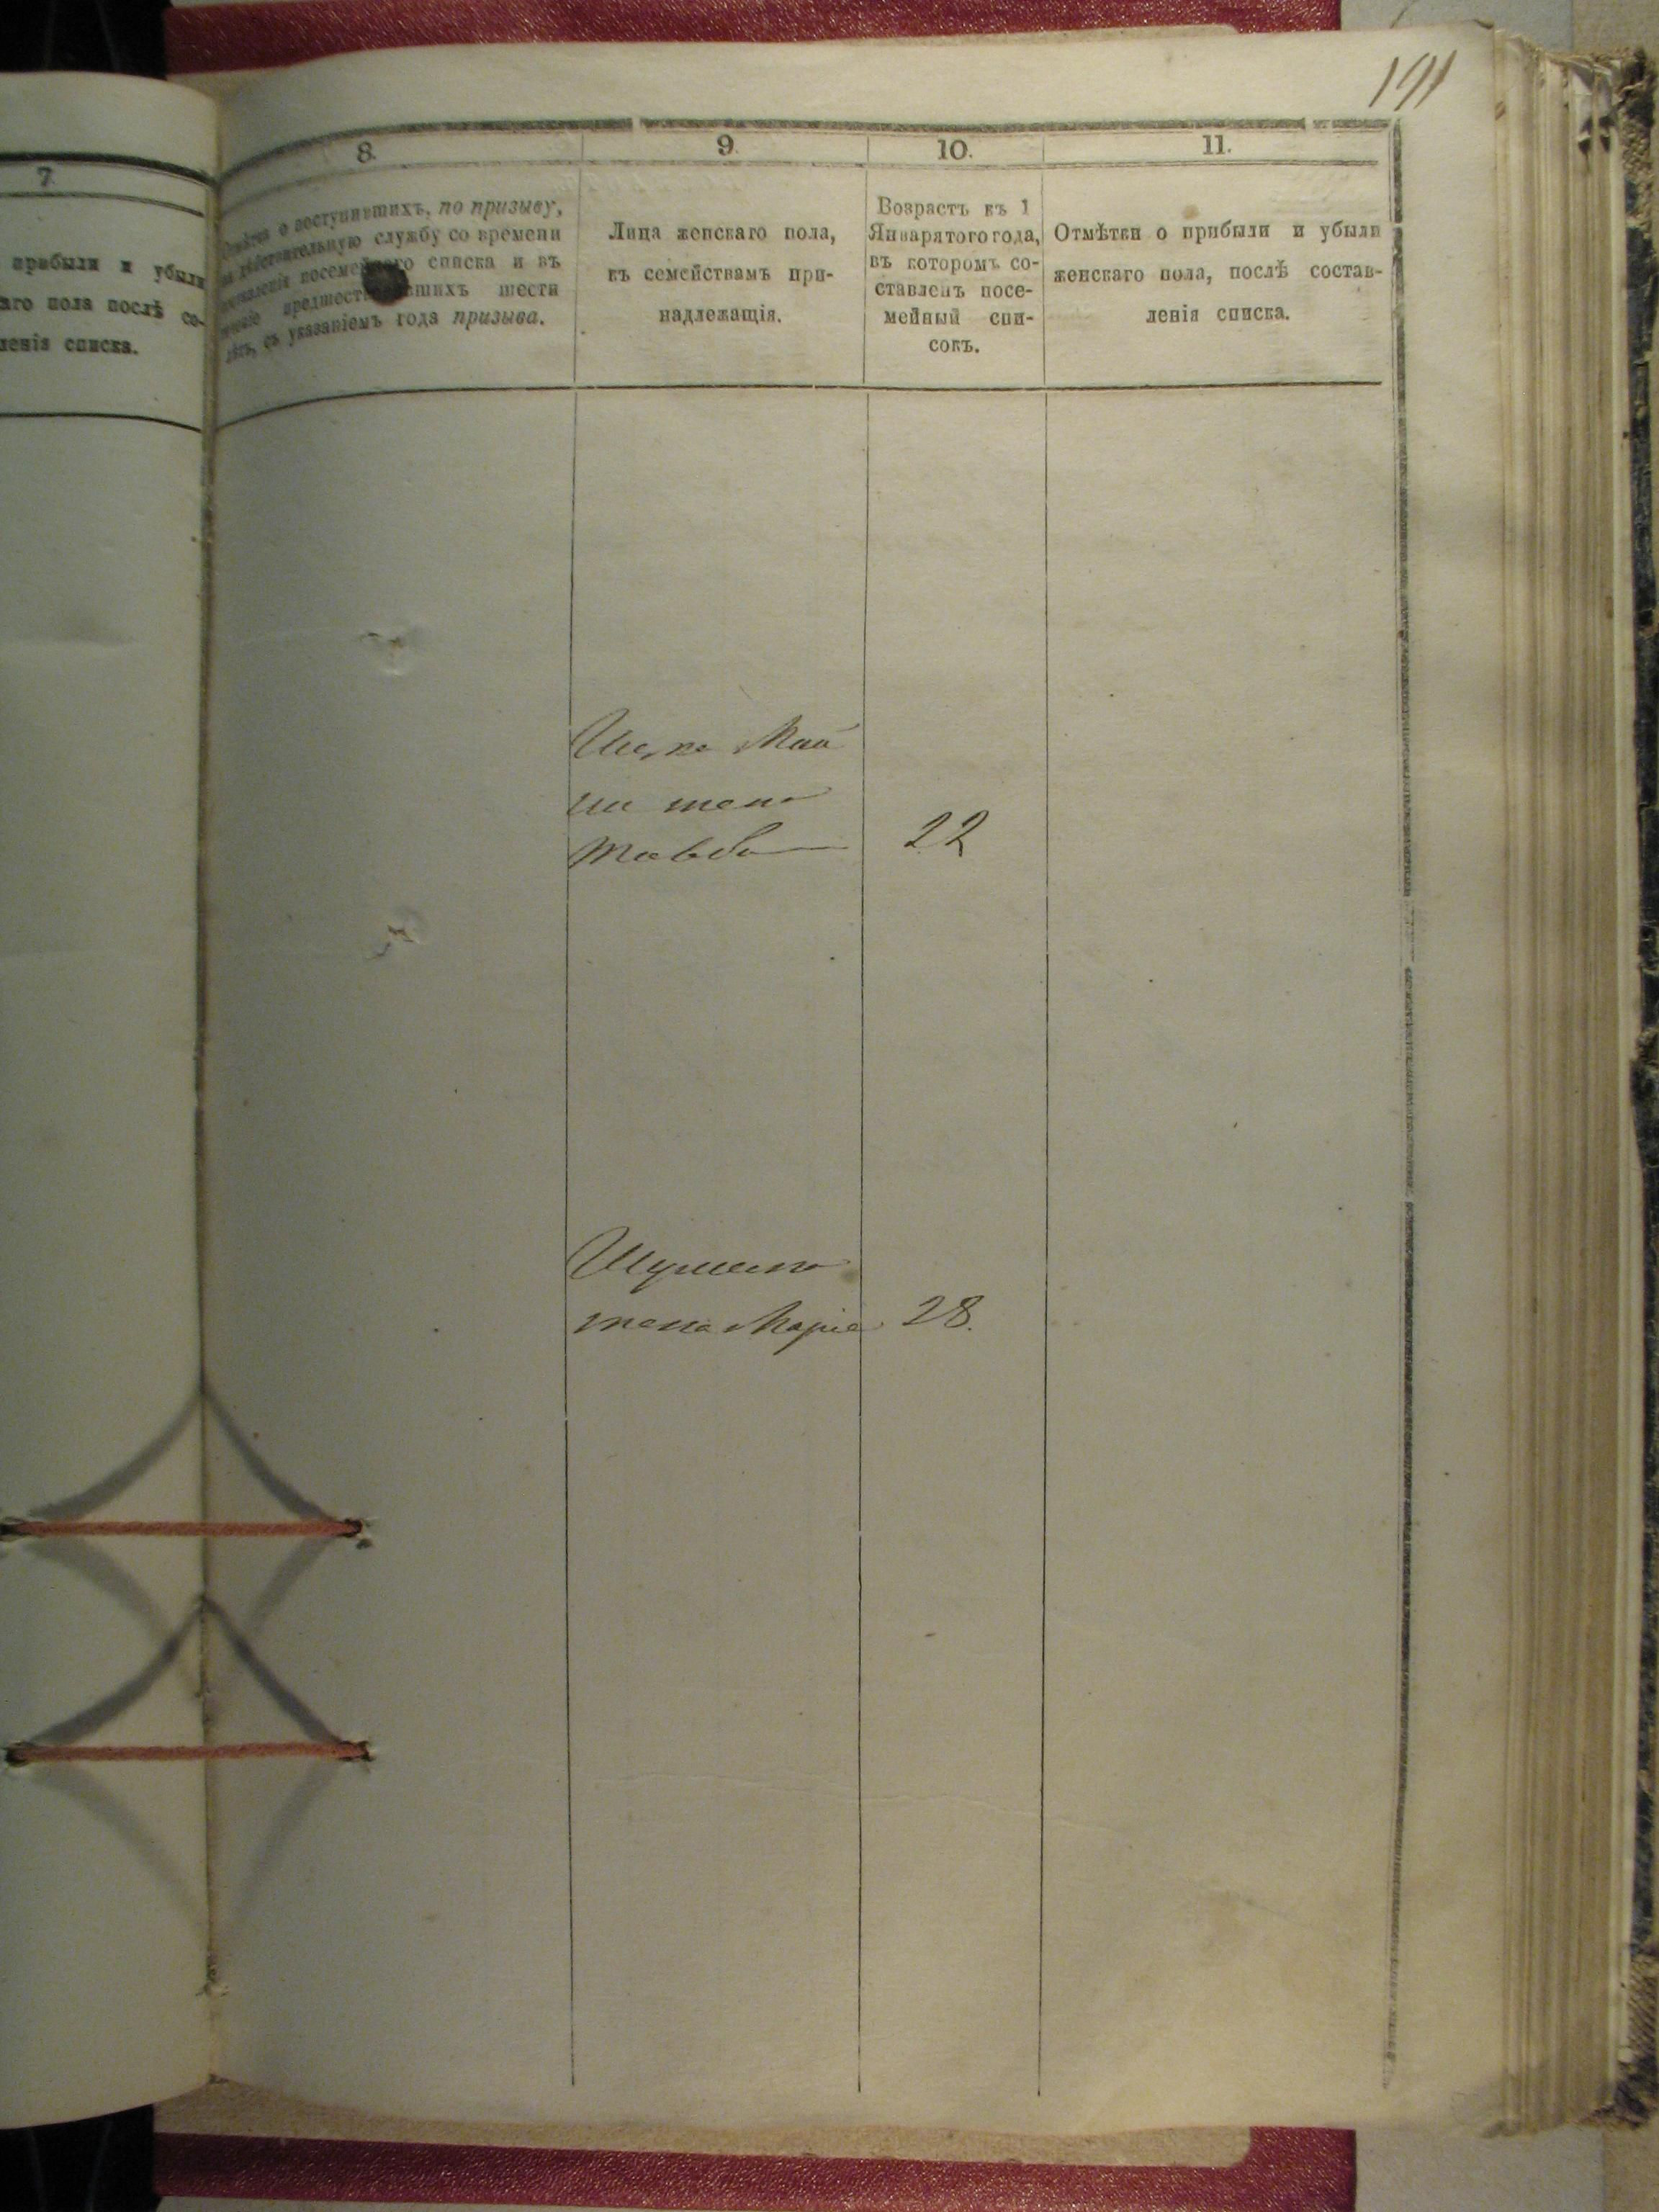 191
7
прибыли и убыли
аго пола послѣ со-
ленія списка.
8.
о поступившихъ, по призыву,
на дѣйствительную службу со времени
составленія посемейнаго списка и въ
теченіе предшествовавшихъ шести
лѣтъ, съ указаніемъ года призыва.
9.
Лица женскаго пола,
къ семействамъ при-
надлежащія.
10.
Возрастъ къ 1
Января того года,
въ которомъ со-
ставленъ посе-
мейный спи-
сокъ.
11.
Отмѣтки о прибыли и убыли
женскаго пола, послѣ состав-
ленія списка.
жена
22
жена Марія 28.